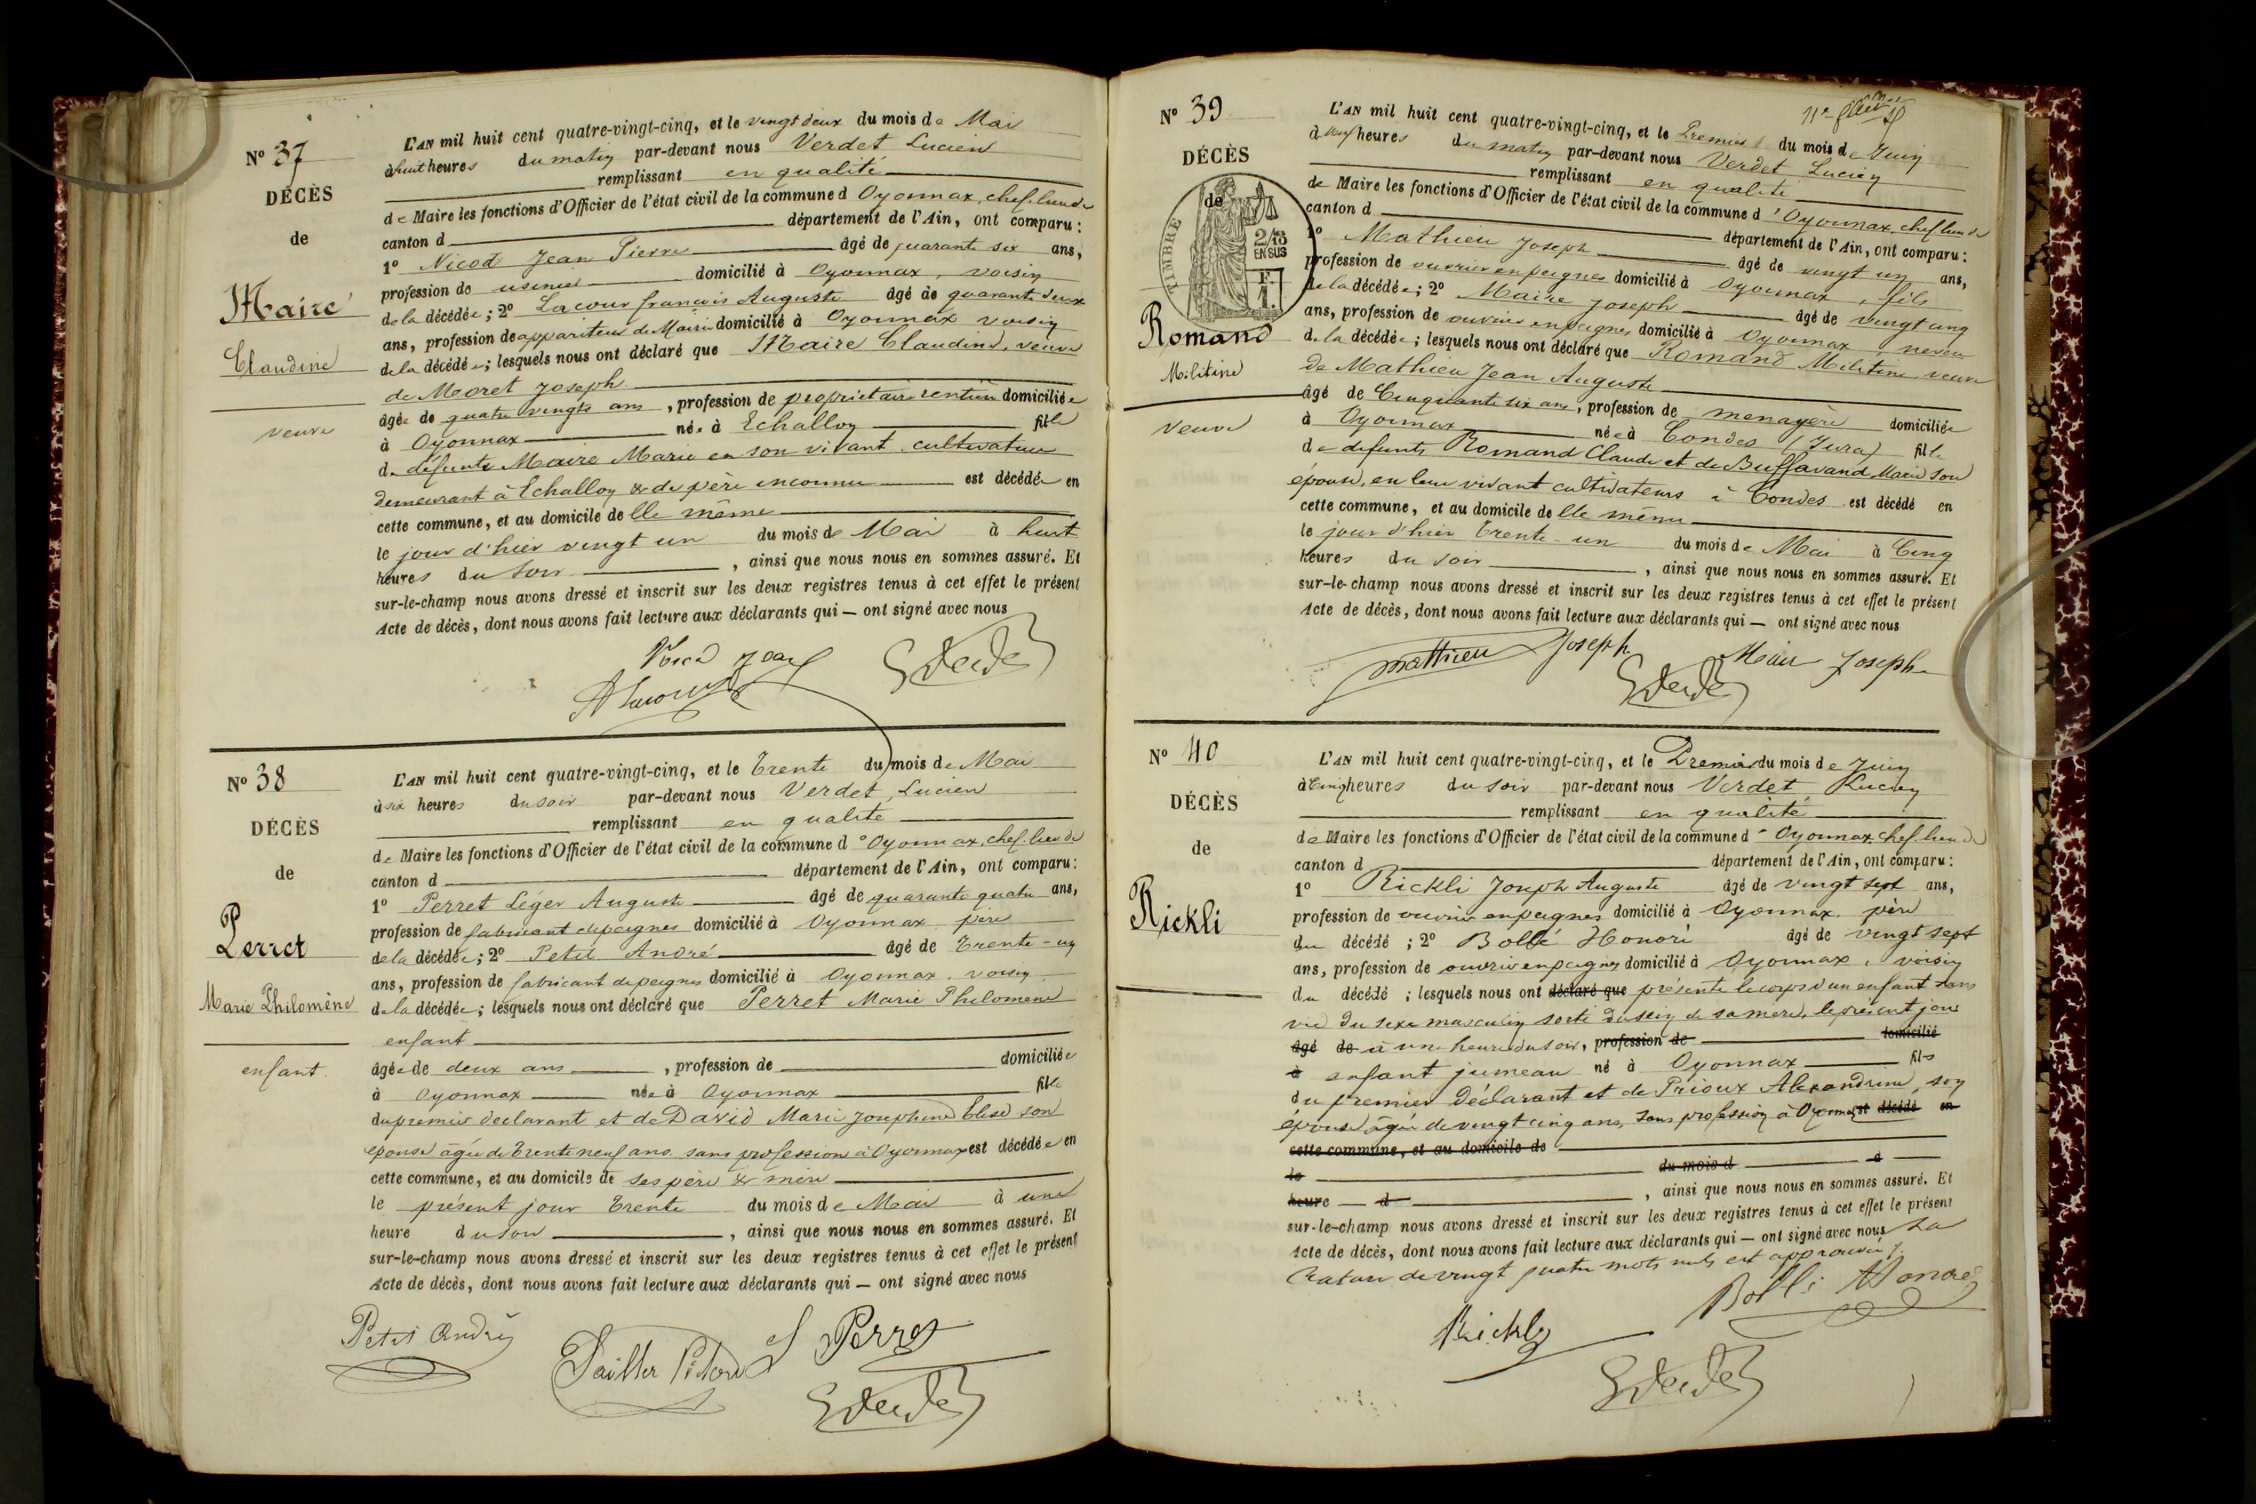 N° 37
DÉCÈS
de
Maire
Claudine
veuve
L'AN mil huit cent quatre-vingt-cinq, et le vingt deux du mois de Mai
à huit heures du matin par-devant nous Verdet Lucien
remplissant en qualité
de Maire les fonctions d'Officier de l'état civil de la commune d Oyonnax, chef-lieu de
canton d département de l'Ain, ont comparu :
1° Nicod Jean Pierre âgé de quarante six ans,
profession de usinier domicilié à Oyonnax, voisin
de la décédée ; 2° Lacour françois Auguste âgé de quarante deux
ans, profession de appariteur de Mairie domicilié à Oyonnax voisin
de la décédée ; lesquels nous ont déclaré que Maire Claudine, veuve
de Moret Joseph
âgée de quatre vingts ans, profession de propriétaire rentière domiciliée
à Oyonnax née à Echallon fille
de défunte Maire Marie en son vivant cultivatrice
demeurant à Echallon & de père inconnu est décédée en
cette commune, et au domicile de lle même
le jour d'hier vingt un du mois de Mai à huit
heures du soir, ainsi que nous nous en sommes assuré. Et
sur-le-champ nous avons dressé et inscrit sur les deux registres tenus à cet effet le présent
Acte de décès, dont nous avons fait lecture aux déclarants qui — ont signé avec nous
Nicod Jean
N° 38
DÉCÈS
de
Perret
Marie Philomène
enfant
L'AN mil huit cent quatre-vingt-cinq, et le Trente du mois de Mai
à six heures du soir par-devant nous Verdet, Lucien
remplissant en qualité
de Maire les fonctions d'Officier de l'état civil de la commune d'Oyonnax, chef-lieu de
canton d département de l'Ain, ont comparu :
1° Perret Léger Auguste âgé de quarante quatre ans,
profession de fabricant de peignes domicilié à Oyonnax père
de la décédée ; 2° Petit André âgé de Trente-un
ans, profession de fabricant de peignes domicilié à Oyonnax, voisin
de la décédée ; lesquels nous ont déclaré que Perret Marie Philomène
enfant
âgée de deux ans, profession de domiciliée
à Oyonnax née à Oyonnax fille
du premier déclarant et de David Marie Josephine Elise son
épouse âgée de Trente neuf ans sans profession à Oyonnax est décédée en
cette commune, et au domicile de ses père & mère
le présent jour Trente du mois de Mai à une
heure du soir, ainsi que nous nous en sommes assuré. Et
sur-le-champ nous avons dressé et inscrit sur les deux registres tenus à cet effet le présent
Acte de décès, dont nous avons fait lecture aux déclarants qui — ont signé avec nous
Petit André
Perret
N° 39
DÉCÈS
de
TIMBRE
2/10
EN SUS
F.
1.
Romand
Militine
veuve
L'AN mil huit cent quatre-vingt-cinq, et le Premier du mois de Juin
à neuf heures du matin par-devant nous Verdet Lucien
remplissant en qualité
de Maire les fonctions d'Officier de l'état civil de la commune d'Oyonnax, chef-lieu de
canton d département de l'Ain, ont comparu :
1° Mathieu Joseph âgé de vingt un ans,
profession de ouvrier en peignes domicilié à Oyonnax, fils
de la décédée ; 2° Maire Joseph âgé de vingt cinq
ans, profession de ouvrier en peignes domicilié à Oyonnax neveu
de la décédée ; lesquels nous ont déclaré que Romand Militine veuve
de Mathieu Jean Auguste
âgé de Cinquante six ans, profession de menagère domiciliée
à Oyonnax née à Condes (Jura) fille
de defunts Romand Claude et de Buffavand Marie son
épouse, en leur vivant cultivateurs à Condes est décédé en
cette commune, et au domicile de lle même
le jour d'hier Trente-un du mois de Mai à Cinq
heures du soir, ainsi que nous nous en sommes assuré. Et
sur-le-champ nous avons dressé et inscrit sur les deux registres tenus à cet effet le présent
Acte de décès, dont nous avons fait lecture aux déclarants qui — ont signé avec nous
Mathieu Joseph Maire Joseph
N° 40
DÉCÈS
de
Rickli
L'AN mil huit cent quatre-vingt-cinq, et le Premier du mois de Juin
à Cinq heures du soir par-devant nous Verdet Lucien
remplissant en qualité
de Maire les fonctions d'Officier de l'état civil de la commune d'Oyonnax, chef-lieu de
canton d département de l'Ain, ont comparu :
1° Rickli Joseph Auguste âgé de vingt sept ans,
profession de ouvrier en peignes domicilié à Oyonnax, père
du décédé ; 2° Bollé Honoré âgé de vingt sept
ans, profession de ouvrier en peignes domicilié à Oyonnax, voisin
du décédé ; lesquels nous ont déclaré que présenté le corps d'un enfant sans
vie du sexe masculin sorti du sein de sa mère, le présent jour
âgé de à une heure du soir, profession de domicilié
à enfant jumeau né à Oyonnax fils
du premier déclarant et de Prioux Alexandrine, son
épouse âgée de vingt cinq ans, sans profession à Oyonnax est décédé en
cette commune, et au domicile de
le du mois d à
heure d, ainsi que nous nous en sommes assuré. Et
sur-le-champ nous avons dressé et inscrit sur les deux registres tenus à cet effet le présent
Acte de décès, dont nous avons fait lecture aux déclarants qui — ont signé avec nous La
rature de vingt quatre mots nuls est approuvée
Rickly Bollé Honoré